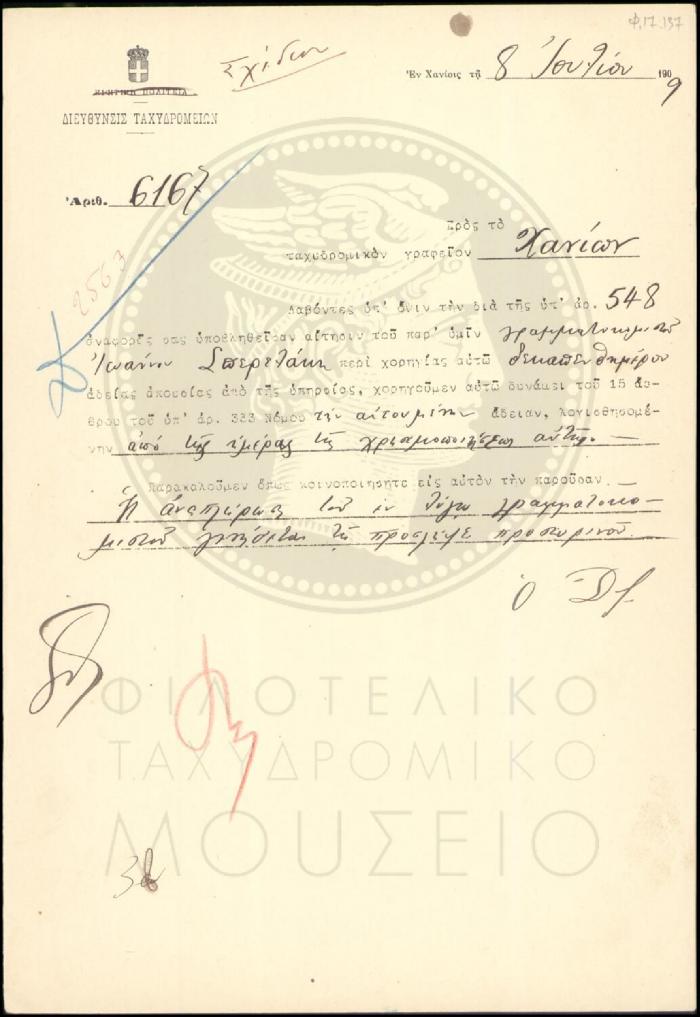 Φ.17.137
Σχέδιον
Ἐν Χανίοις τῇ 8 Ἰουλίου 1909
ΚΡΗΤΙΚΗ ΠΟΛΙΤΕΙΑ
ΔΙΕΥΘΥΝΣΙΣ ΤΑΧΥΔΡΟΜΕΙΩΝ
Ἀριθ. 6167
2563
Πρὸς τὸ
ταχυδρομικὸν γραφεῖον Χανίων
Λαβόντες ὑπ' ὄψιν τὴν διὰ τῆς ὑπ' ἀρ. 548
ἀναφορᾶς σας ὑποβληθεῖσαν αἴτησιν τοῦ παρ' ὑμῖν γραμματοκομιστοῦ
Ἰωάννου περὶ χορηγίας αὐτῷ δεκαπενθημέρου
ἀδείας ἀπουσίας ἀπὸ τῆς ὑπηρεσίας, χορηγοῦμεν αὐτῷ δυνάμει τοῦ 15 ἄρ-
θρου τοῦ ὑπ' ἀρ. 333 Νόμου τὴν αἰτουμένην ἄδειαν, λογισθησομέ-
νην ἀπὸ τῆς ἡμέρας τῆς χρησιμοποιήσεως αὐτῆς.—
Παρακαλοῦμεν ὅπως κοινοποιήσητε εἰς αὐτὸν τὴν παροῦσαν.—
Ἡ ἀναπλήρωσις τοῦ ἐν λόγῳ γραμματοκο-
μιστοῦ γενήσεται τῇ προσλήψει προσωρινοῦ.—
Ὁ Δ.
ΦΙΛΟΤΕΛΙΚΟ
ΤΑΧΥΔΡΟΜΙΚΟ
ΜΟΥΣΕΙΟ